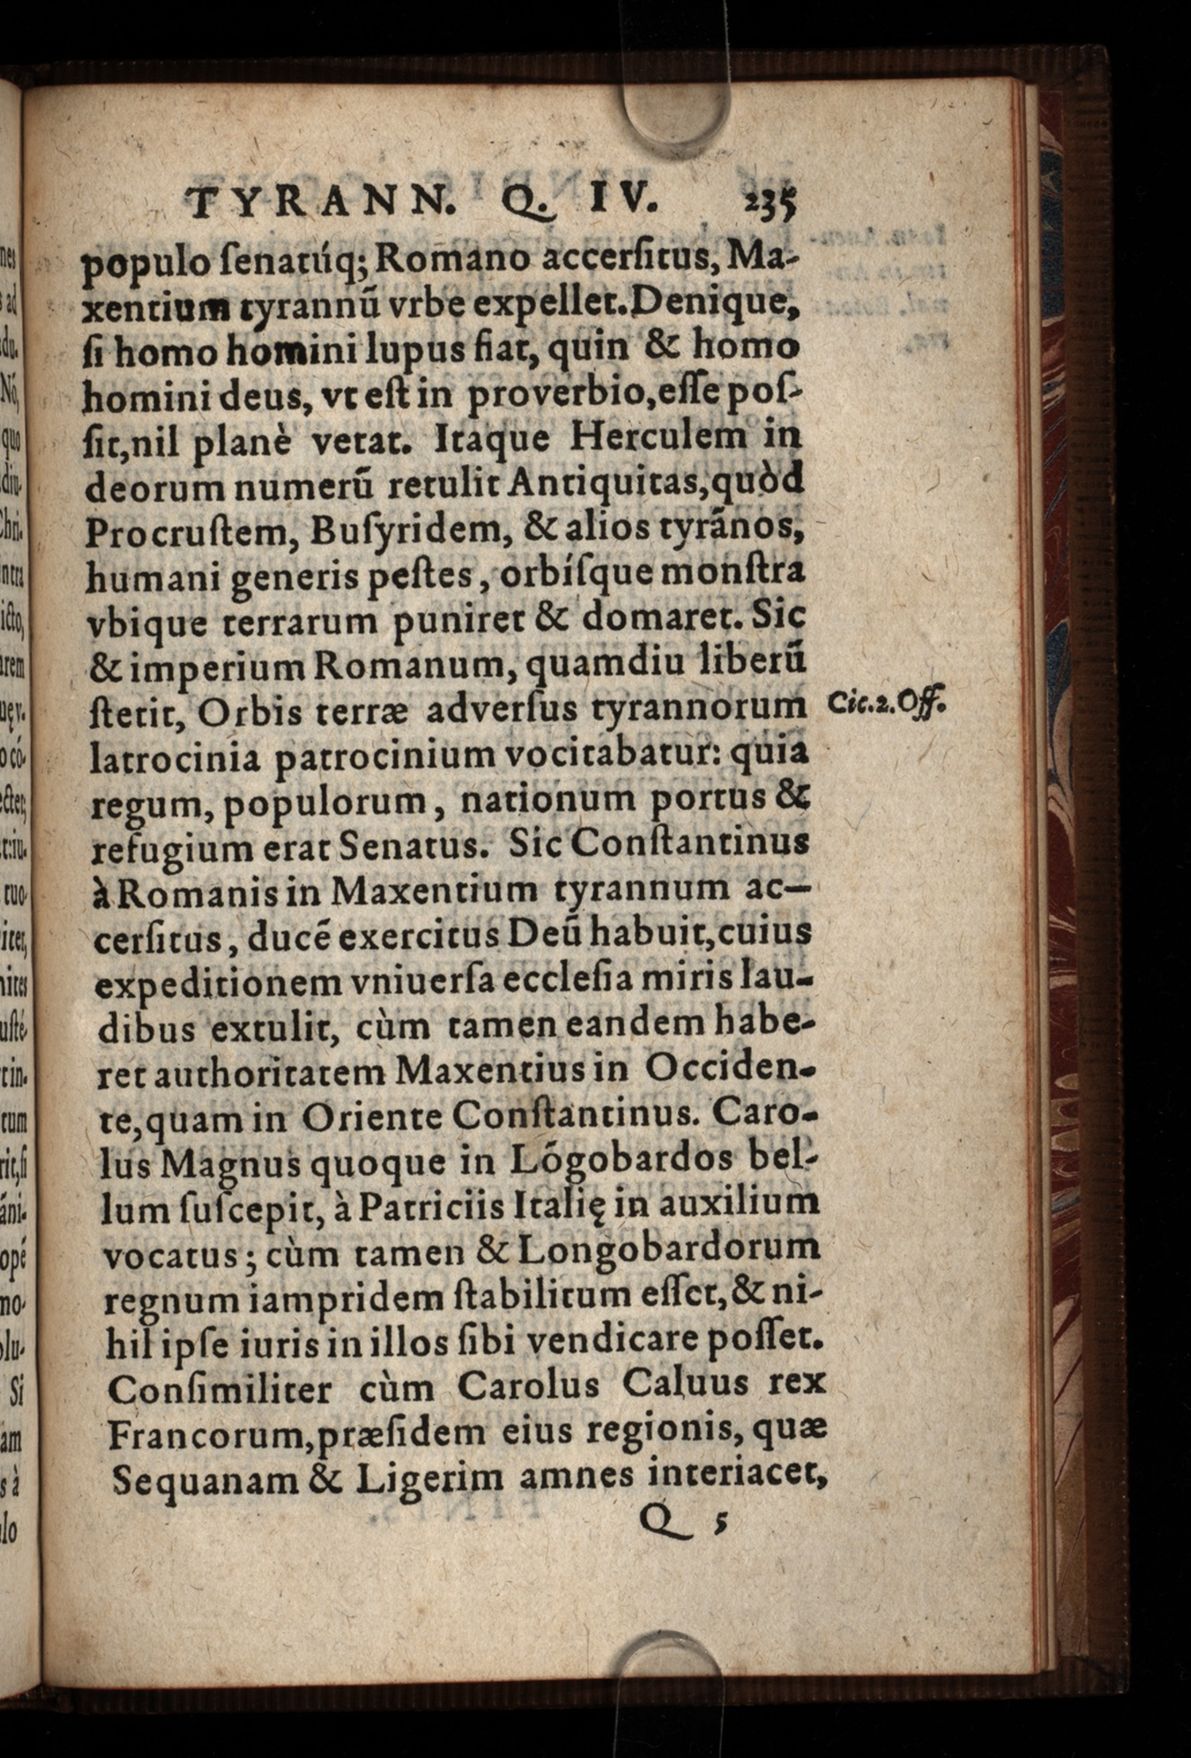 TYRANN. Q. IV. 235
populo ſenatúq; Romano accerſitus, Ma-
xentium tyrannū vrbe expellet. Denique,
ſi homo homini lupus fiat, quin & homo
homini deus, vt eſt in proverbio, eſſe poſ-
ſit, nil planè vetat. Itaque Herculem in
deorum numerū retulit Antiquitas, quòd
Procruſtem, Buſyridem, & alios tyrānos,
humani generis peſtes, orbíſque monſtra
vbique terrarum puniret & domaret. Sic
& imperium Romanum, quamdiu liberū
ſtetit, Orbis terræ adverſus tyrannorum
Cic. 2. Off.
latrocinia patrocinium vocitabatur: quia
regum, populorum, nationum portus &
refugium erat Senatus. Sic Conſtantinus
à Romanis in Maxentium tyrannum ac-
cerſitus, ducē exercitus Deū habuit, cuius
expeditionem vniuerſa eccleſia miris lau-
dibus extulit, cùm tamen eandem habe-
ret authoritatem Maxentius in Occiden-
te, quam in Oriente Conſtantinus. Caro-
lus Magnus quoque in Lōgobardos bel-
lum ſuſcepit, à Patriciis Italię in auxilium
vocatus; cùm tamen & Longobardorum
regnum iampridem ſtabilitum eſſet, & ni-
hil ipſe iuris in illos ſibi vendicare poſſet.
Conſimiliter cùm Carolus Caluus rex
Francorum, præſidem eius regionis, quæ
Sequanam & Ligerim amnes interiacet,
Q 5